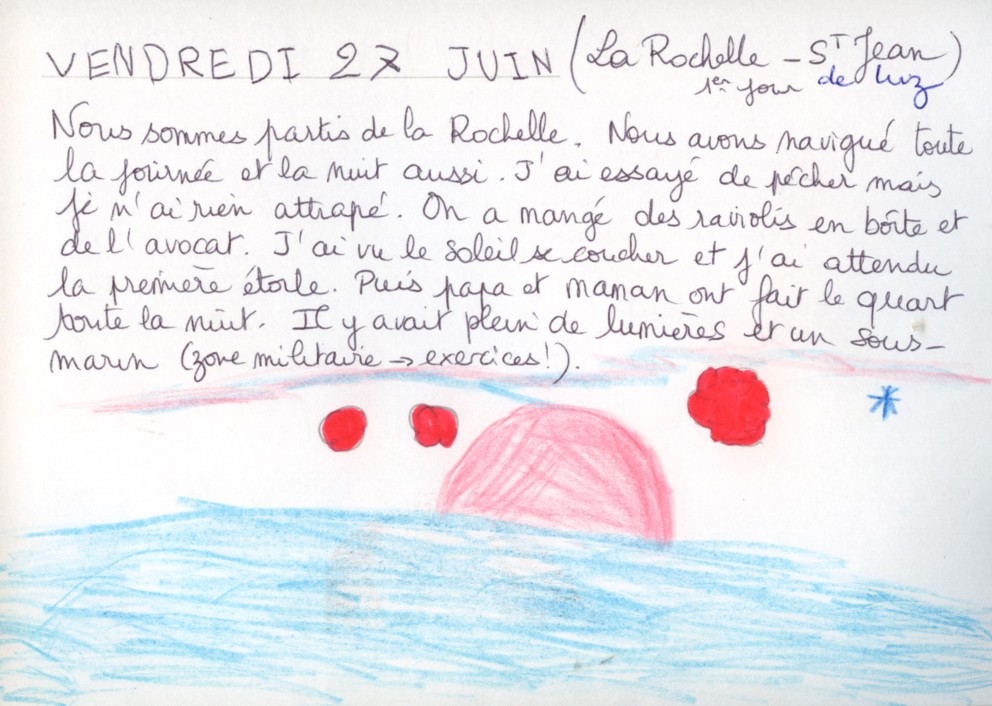 VENDREDI 27 JUIN (La Rochelle - ST Jean de luz)
1er jour
Nous sommes partis de la Rochelle. Nous avons navigué toute
la journée et la nuit aussi. J'ai essayé de pêcher mais
je n'ai rien attrapé. On a mangé des raviolis en boîte et
de l'avocat. J'ai vu le soleil se coucher et j'ai attendu
la première étoile. Puis papa et maman ont fait le quart
toute la nuit. Il y avait plein de lumières et un sous-
marin (zone militaire → exercices!).